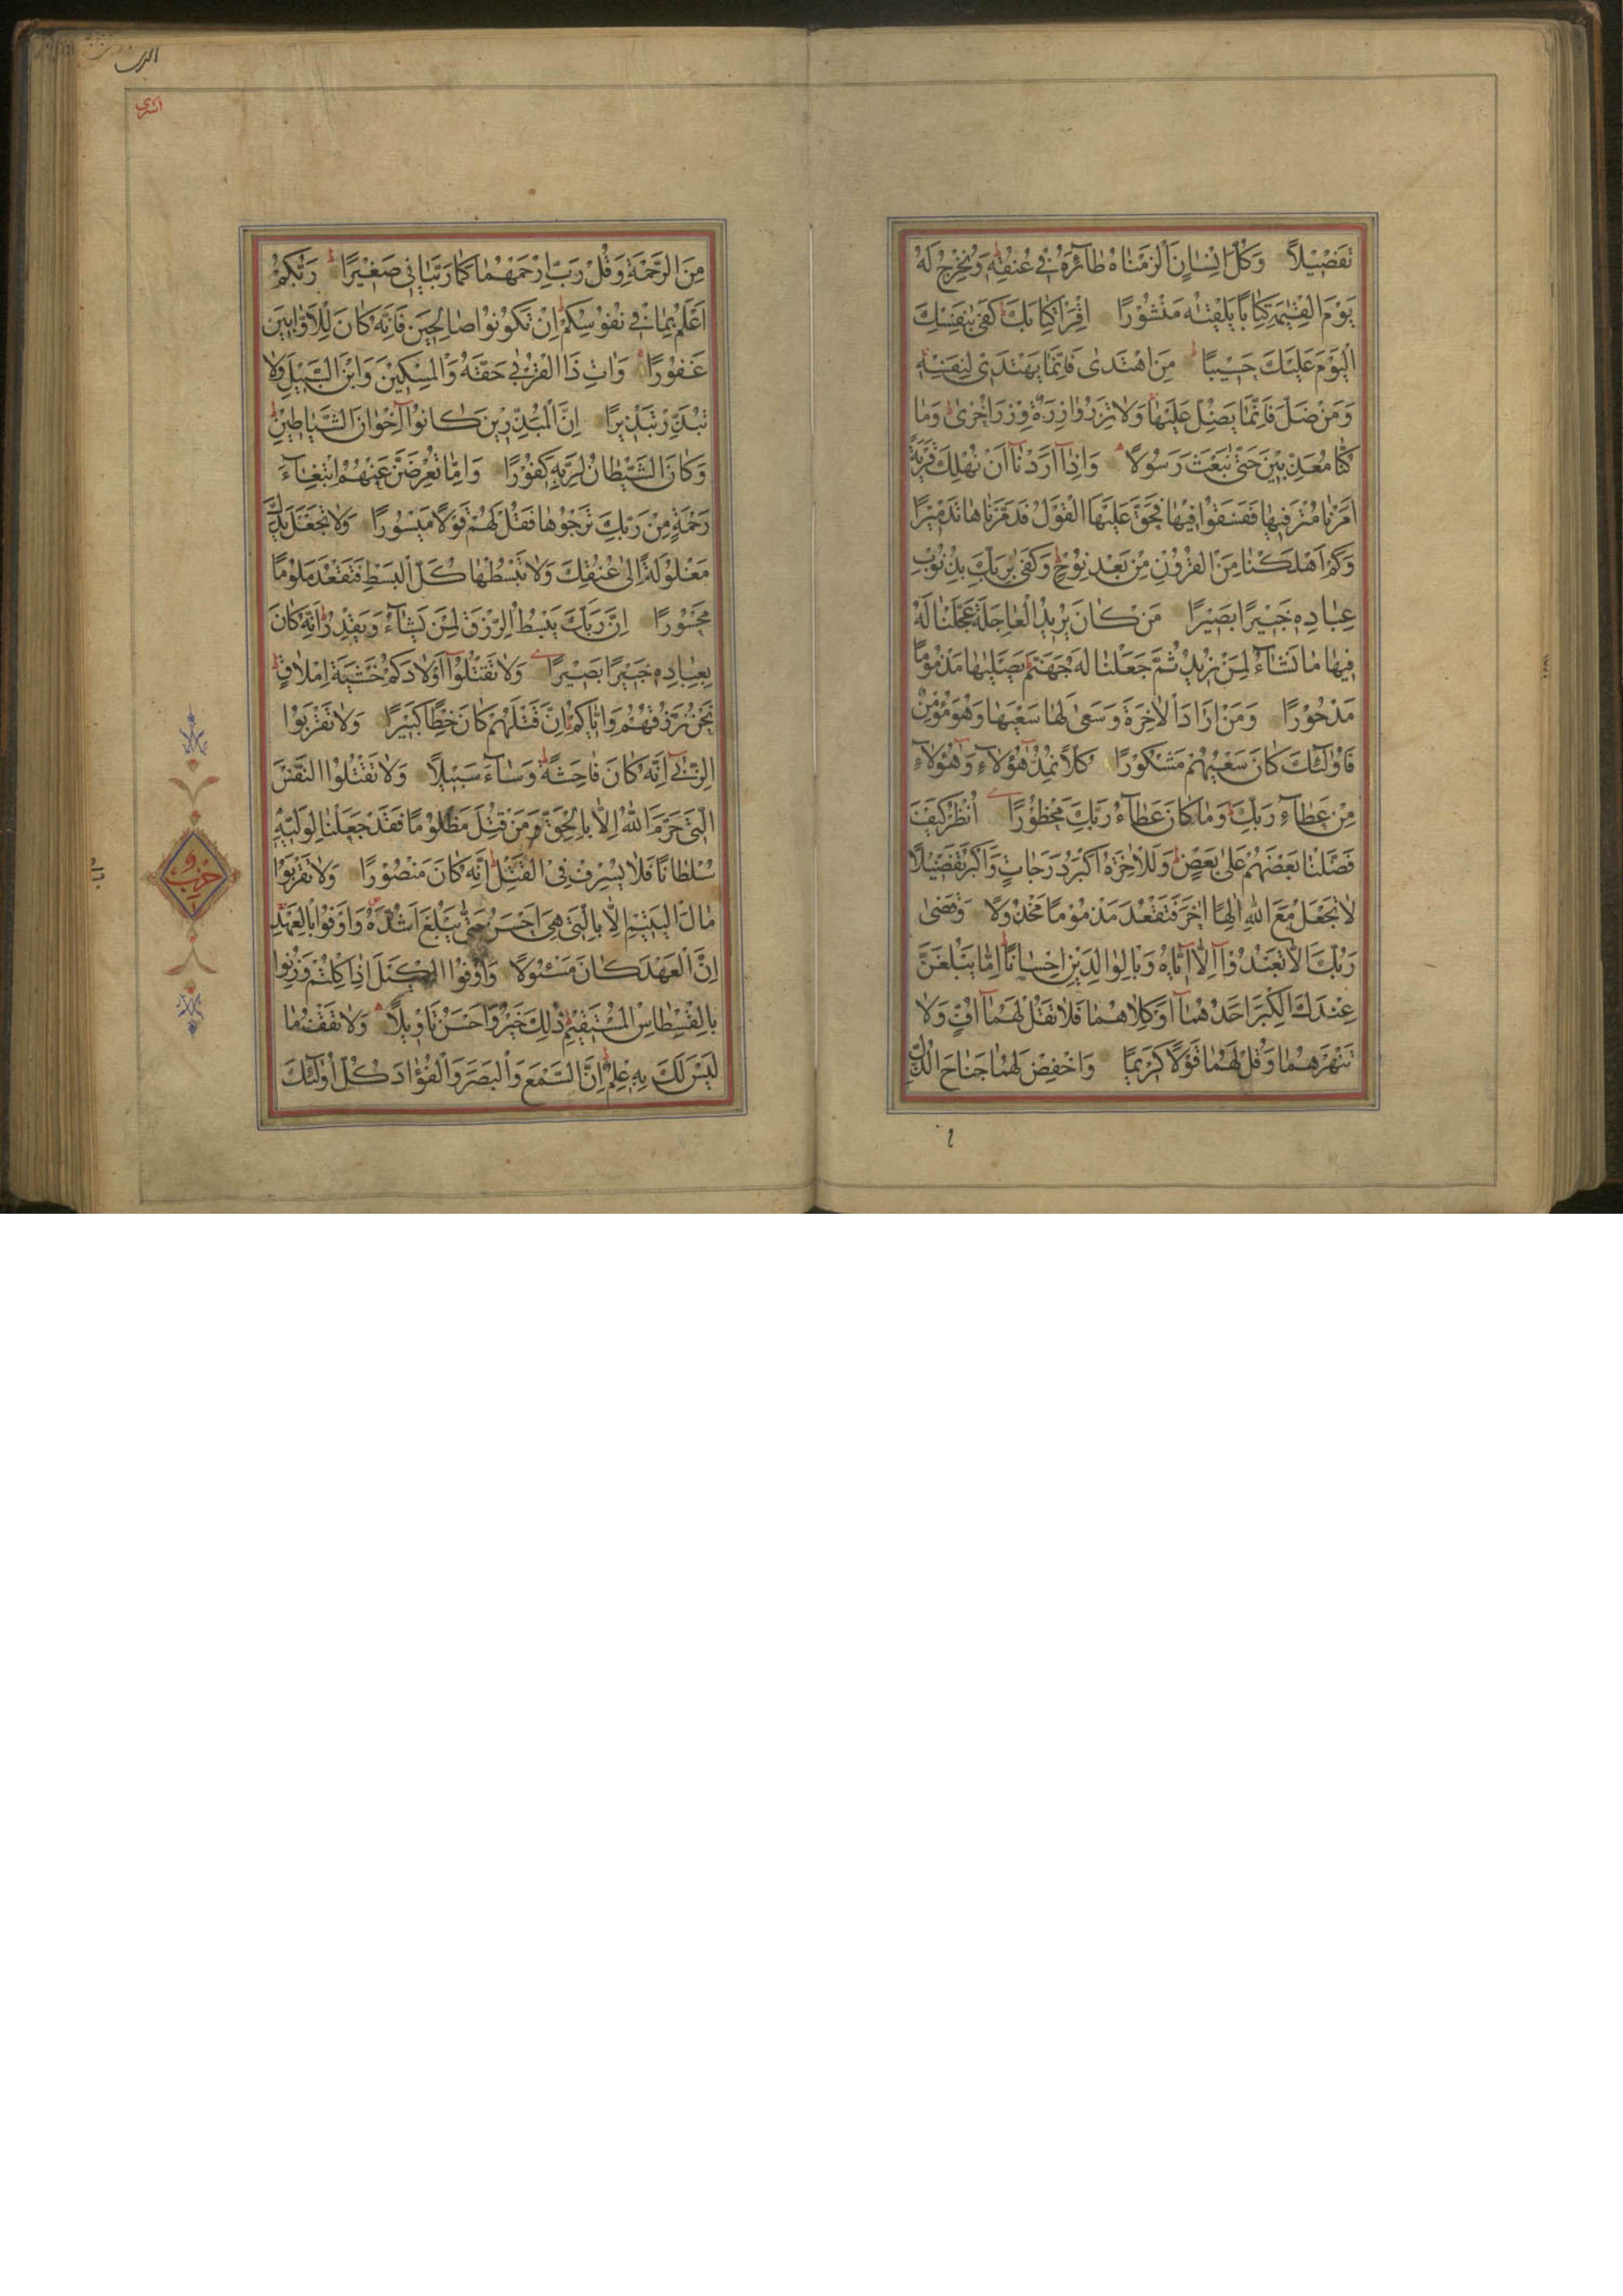 تَفْصِيلًا وَكُلَّ اِنْسَانٍ اَلْزَمْنَاهُ طَآئِرَهُ فِي عُنُقِهِ وَنُخْرِجُ لَهُ
يَوْمَ الْقِيٰمَةِ كِتَابًا يَلْقٰيهُ مَنْشُورًا اِقْرَأْ كِتَابَكَ كَفٰى بِنَفْسِكَ
الْيَوْمَ عَلَيْكَ حَسِيبًا مَنِ اهْتَدٰى فَاِنَّمَا يَهْتَدِي لِنَفْسِهِ
وَمَنْ ضَلَّ فَاِنَّمَا يَضِلُّ عَلَيْهَا وَلَا تَزِرُ وَازِرَةٌ وِزْرَ اُخْرٰى وَمَا
كُنَّا مُعَذِّبِينَ حَتّٰى نَبْعَثَ رَسُولًا وَاِذَآ اَرَدْنَآ اَنْ نُهْلِكَ قَرْيَةً
اَمَرْنَا مُتْرَفِيهَا فَفَسَقُوا فِيهَا فَحَقَّ عَلَيْهَا الْقَوْلُ فَدَمَّرْنَاهَا تَدْمِيرًا
وَكَمْ اَهْلَكْنَا مِنَ الْقُرُونِ مِنْ بَعْدِ نُوحٍ وَكَفٰى بِرَبِّكَ بِذُنُوبِ
عِبَادِهِ خَبِيرًا بَصِيرًا مَنْ كَانَ يُرِيدُ الْعَاجِلَةَ عَجَّلْنَا لَهُ
فِيهَا مَا نَشَآءُ لِمَنْ نُرِيدُ ثُمَّ جَعَلْنَا لَهُ جَهَنَّمَ يَصْلٰيهَا مَذْمُومًا
مَدْحُورًا وَمَنْ اَرَادَ الْاٰخِرَةَ وَسَعٰى لَهَا سَعْيَهَا وَهُوَ مُؤْمِنٌ
فَاُولٰٓئِكَ كَانَ سَعْيُهُمْ مَشْكُورًا كُلًّا نُمِدُّ هٰٓؤُلَآءِ وَهٰٓؤُلَآءِ
مِنْ عَطَآءِ رَبِّكَ وَمَا كَانَ عَطَآءُ رَبِّكَ مَحْظُورًا اُنْظُرْ كَيْفَ
فَضَّلْنَا بَعْضَهُمْ عَلٰى بَعْضٍ وَلَلْاٰخِرَةُ اَكْبَرُ دَرَجَاتٍ وَاَكْبَرُ تَفْضِيلًا
لَا تَجْعَلْ مَعَ اللّٰهِ اِلٰهًا اٰخَرَ فَتَقْعُدَ مَذْمُومًا مَخْذُولًا وَقَضٰى
رَبُّكَ اَلَّا تَعْبُدُوٓا اِلَّآ اِيَّاهُ وَبِالْوَالِدَيْنِ اِحْسَانًا اِمَّا يَبْلُغَنَّ
عِنْدَكَ الْكِبَرَ اَحَدُهُمَآ اَوْ كِلَاهُمَا فَلَا تَقُلْ لَهُمَآ اُفٍّ وَلَا
تَنْهَرْهُمَا وَقُلْ لَهُمَا قَوْلًا كَرِيمًا وَاخْفِضْ لَهُمَا جَنَاحَ الذُّلِّ
اسرى
مِنَ الرَّحْمَةِ وَقُلْ رَبِّ ارْحَمْهُمَا كَمَا رَبَّيَانِي صَغِيرًا رَبُّكُمْ
اَعْلَمُ بِمَا فِي نُفُوسِكُمْ اِنْ تَكُونُوا صَالِحِينَ فَاِنَّهُ كَانَ لِلْاَوَّابِينَ
غَفُورًا وَاٰتِ ذَا الْقُرْبٰى حَقَّهُ وَالْمِسْكِينَ وَابْنَ السَّبِيلِ وَلَا
تُبَذِّرْ تَبْذِيرًا اِنَّ الْمُبَذِّرِينَ كَانُوٓا اِخْوَانَ الشَّيَاطِينِ
وَكَانَ الشَّيْطَانُ لِرَبِّهِ كَفُورًا وَاِمَّا تُعْرِضَنَّ عَنْهُمُ ابْتِغَآءَ
رَحْمَةٍ مِنْ رَبِّكَ تَرْجُوهَا فَقُلْ لَهُمْ قَوْلًا مَيْسُورًا وَلَا تَجْعَلْ يَدَكَ
مَغْلُولَةً اِلٰى عُنُقِكَ وَلَا تَبْسُطْهَا كُلَّ الْبَسْطِ فَتَقْعُدَ مَلُومًا
مَحْسُورًا اِنَّ رَبَّكَ يَبْسُطُ الرِّزْقَ لِمَنْ يَشَآءُ وَيَقْدِرُ اِنَّهُ كَانَ
بِعِبَادِهِ خَبِيرًا بَصِيرًا وَلَا تَقْتُلُوٓا اَوْلَادَكُمْ خَشْيَةَ اِمْلَاقٍ
نَحْنُ نَرْزُقُهُمْ وَاِيَّاكُمْ اِنَّ قَتْلَهُمْ كَانَ خِطْأً كَبِيرًا وَلَا تَقْرَبُوا
الزِّنٰٓى اِنَّهُ كَانَ فَاحِشَةً وَسَآءَ سَبِيلًا وَلَا تَقْتُلُوا النَّفْسَ
الَّتِي حَرَّمَ اللّٰهُ اِلَّا بِالْحَقِّ وَمَنْ قُتِلَ مَظْلُومًا فَقَدْ جَعَلْنَا لِوَلِيِّهِ
سُلْطَانًا فَلَا يُسْرِفْ فِي الْقَتْلِ اِنَّهُ كَانَ مَنْصُورًا وَلَا تَقْرَبُوا
مَالَ الْيَتِيمِ اِلَّا بِالَّتِي هِيَ اَحْسَنُ حَتّٰى يَبْلُغَ اَشُدَّهُ وَاَوْفُوا بِالْعَهْدِ
اِنَّ الْعَهْدَ كَانَ مَسْئُولًا وَاَوْفُوا الْكَيْلَ اِذَا كِلْتُمْ وَزِنُوا
بِالْقِسْطَاسِ الْمُسْتَقِيمِ ذٰلِكَ خَيْرٌ وَاَحْسَنُ تَأْوِيلًا وَلَا تَقْفُ مَا
لَيْسَ لَكَ بِهِ عِلْمٌ اِنَّ السَّمْعَ وَالْبَصَرَ وَالْفُؤَادَ كُلُّ اُولٰٓئِكَ
حزب